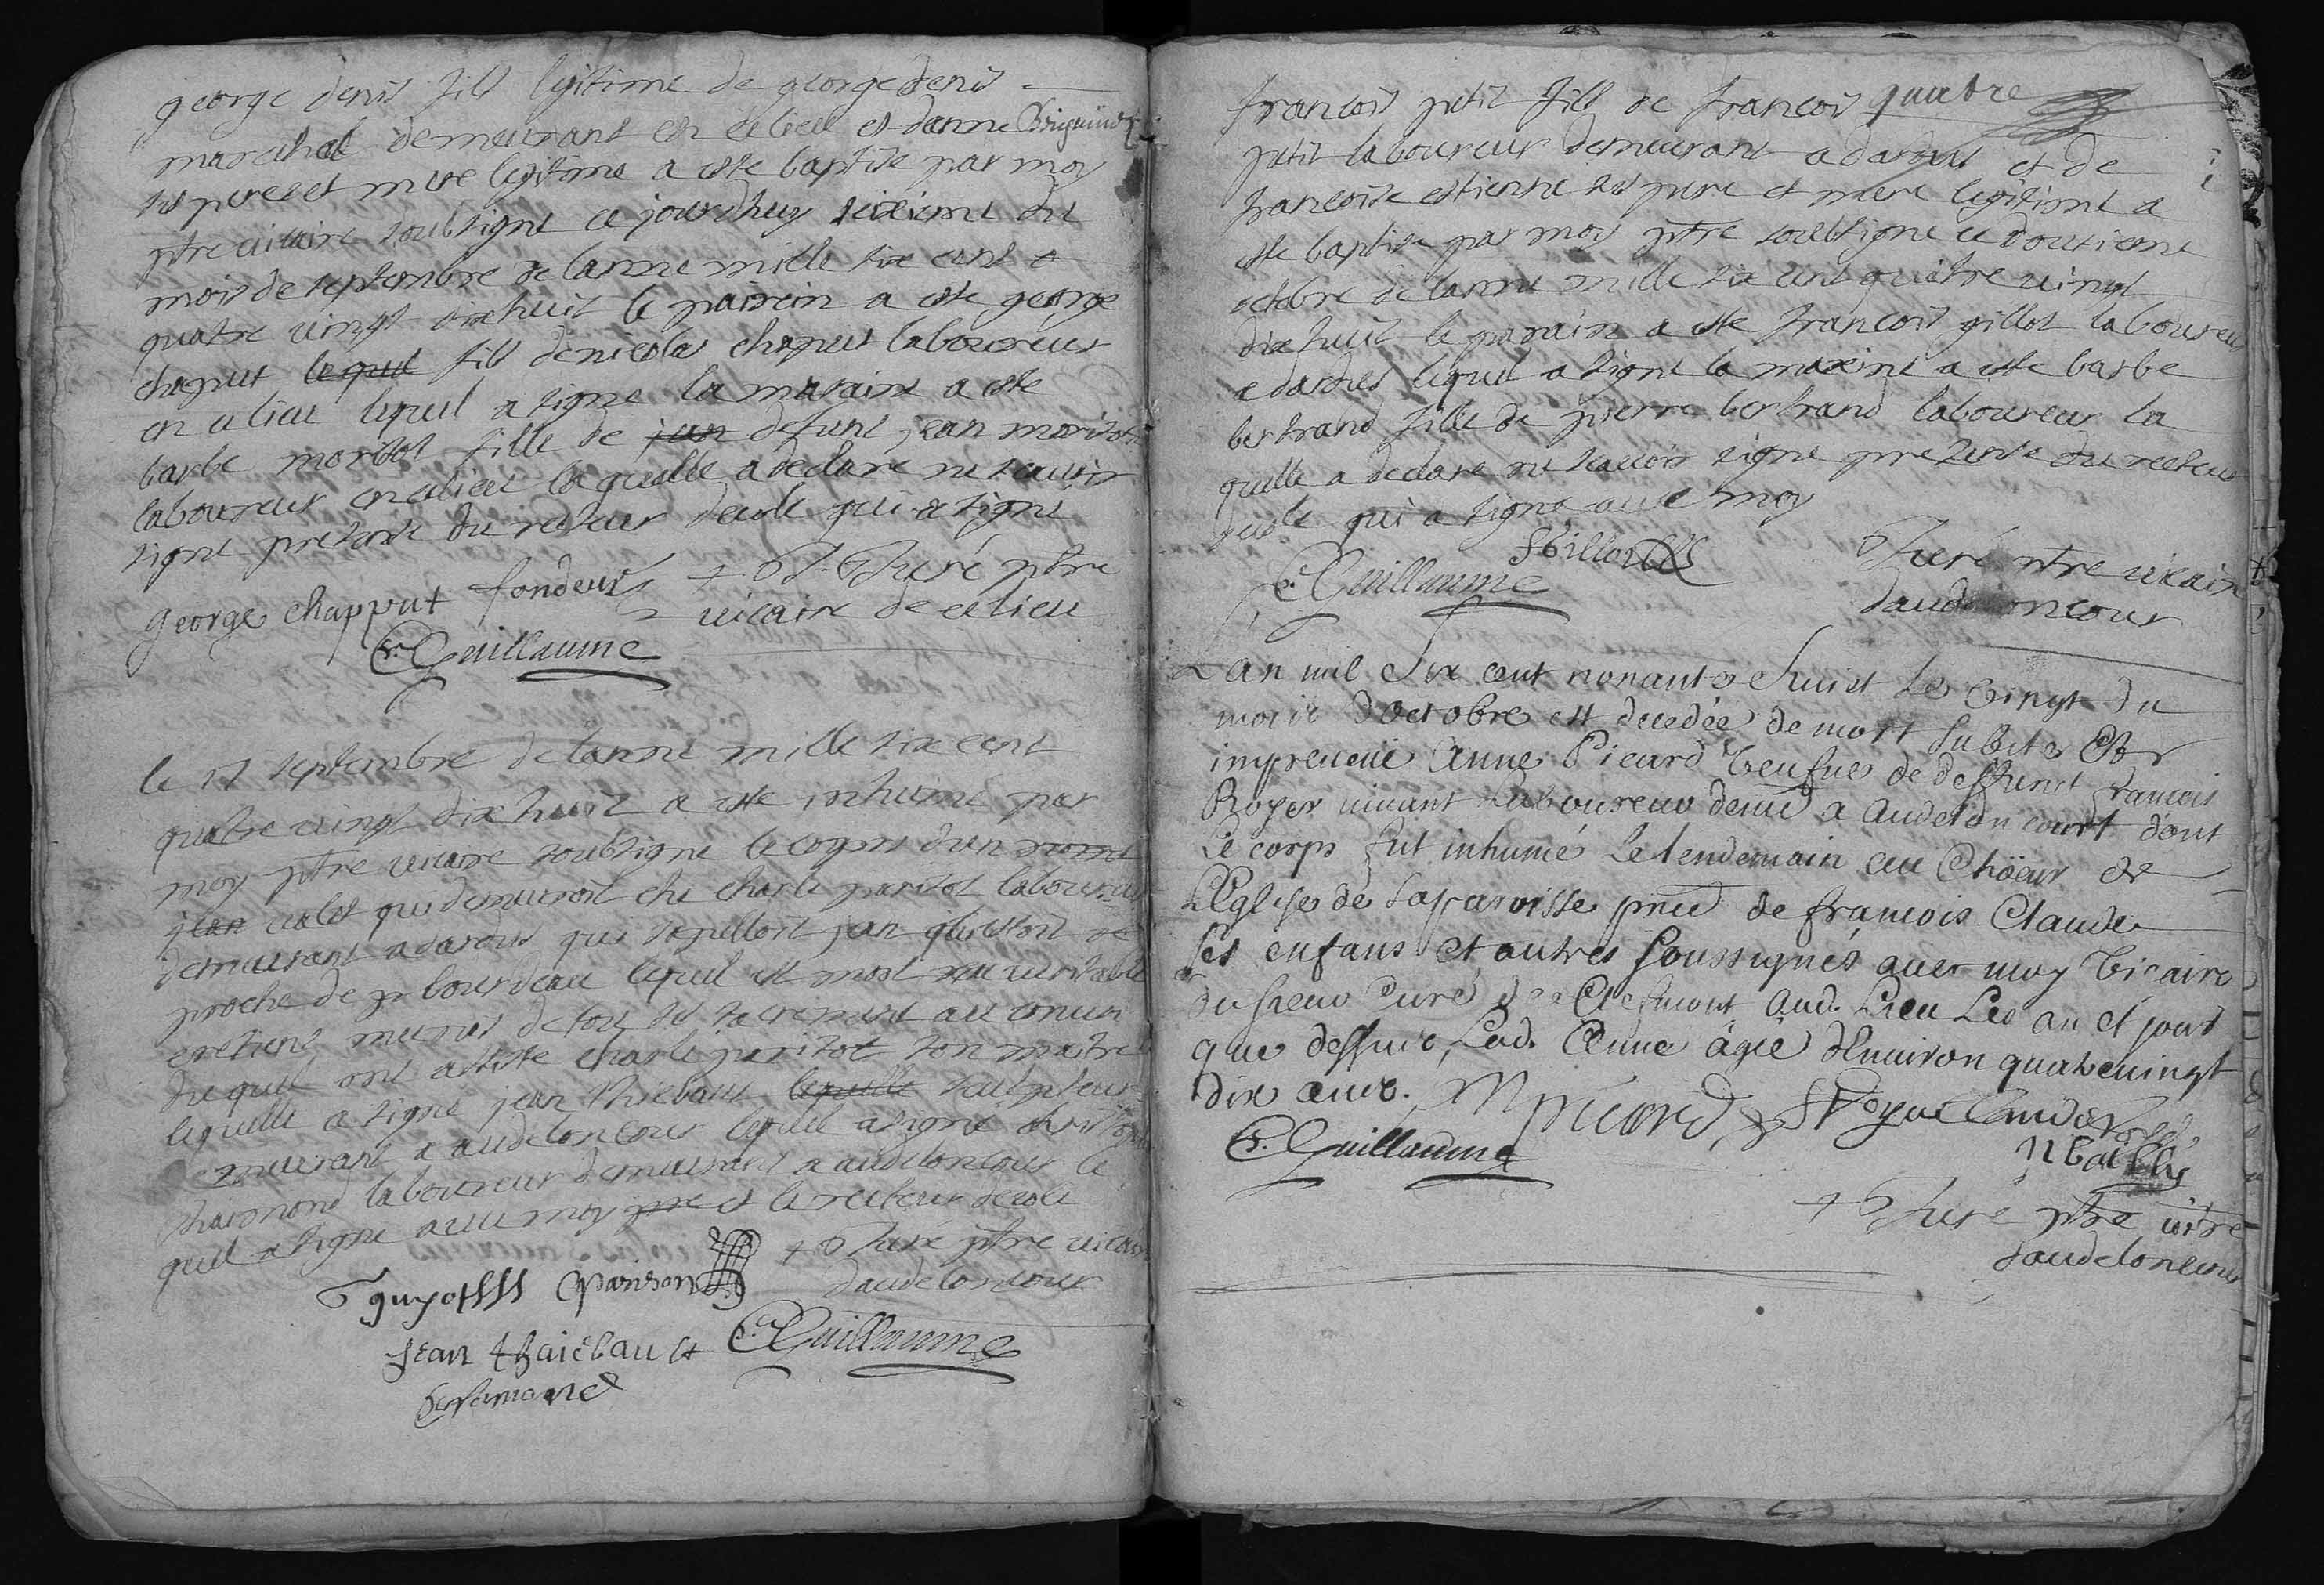 george denis fils legitime de george denis
marechal demeurant en ce lieu et danne Briguind
ses pere et mere legitime a este baptise par moy
ptre vicaire soubsigne ce jourdhuy sixieme du
mois de septembre de lanne mille six cent
quatre vingt dixhuit le pairein a este george
chaput lequel fils de nicolas chaput laboureur
en ce lieu lequel a signe la maraine a este
barbe morisot fille de jean defunt jean morisot
laboureur en ce lieu laquelle a declare ne scavoir
signe presence du recteur decole qui a signe
george chapput fondeur + Juré ptre
vicaire de ce lieu
C Guillaume
le 17 septembre de lanne mille six cent
quatre vingt dix huit a este inhumé par
moy ptre vicaire soubsigne le corps dun nomé
jean valet qui demeuroit che charle parisot laboureur
demeurant a dardus qui sapelloit jean qui estoit de
proche de bourdeau lequel est mort en veritable
cretiens munis de tou ses sacremens au convoi
duquel ont assiste charle parisot son maitre
lequelle a signe jean thiebaut lequelle sculpteur
demeurant a audeloncour lequel a signe
charmond laboureur demeurant a audeloncour le
quel a signe avec moy ptre et le recteur decole
guyot parison + Juré ptre vicaire
daudeloncour
jean thaiebaut C Guillaume
francois petit fils de francois quatre
petit laboureur demeurant a dardus et de
francoise estienne ses pere et mere legitime a
este baptise par moy ptre soubsigne ce douzieme
octobre de lanne mille six cent quatre vingt
dix huit le parain a este francois gillot laboureur
a dardus lequel a signe la mareine a este barbe
bertrand fille de pierre bertrand laboureur la
quelle a declare ne scavoir signe presence du recteur
decole qui a signe avec moy
f Gillot
C Guillaume Juré ptre vicaire
daudeloncour
Lan mil Six cent nonante huict Le vingt du
mois doctobre est decedée de mort subite et
impreveüe Anne Picard veufve de deffunct francois
Royer vivant Laboureur demt a Audeloncourt dont
Le corps fut inhumé Le lendemain au Chöeur de
LEglise de La paroisse pnce de francois Claude
ses enfans et autres soussignés avec moy vicaire
du sieur Curé de Clefmont aud. Lieu Les an et jour
que dessus, Lad. Anne âgée denviron quatrevingt
dix ans. M picard f Royer Claude Royer
C. Guillaume N Bailly
+ Juré ptre vicre
daudeloncour